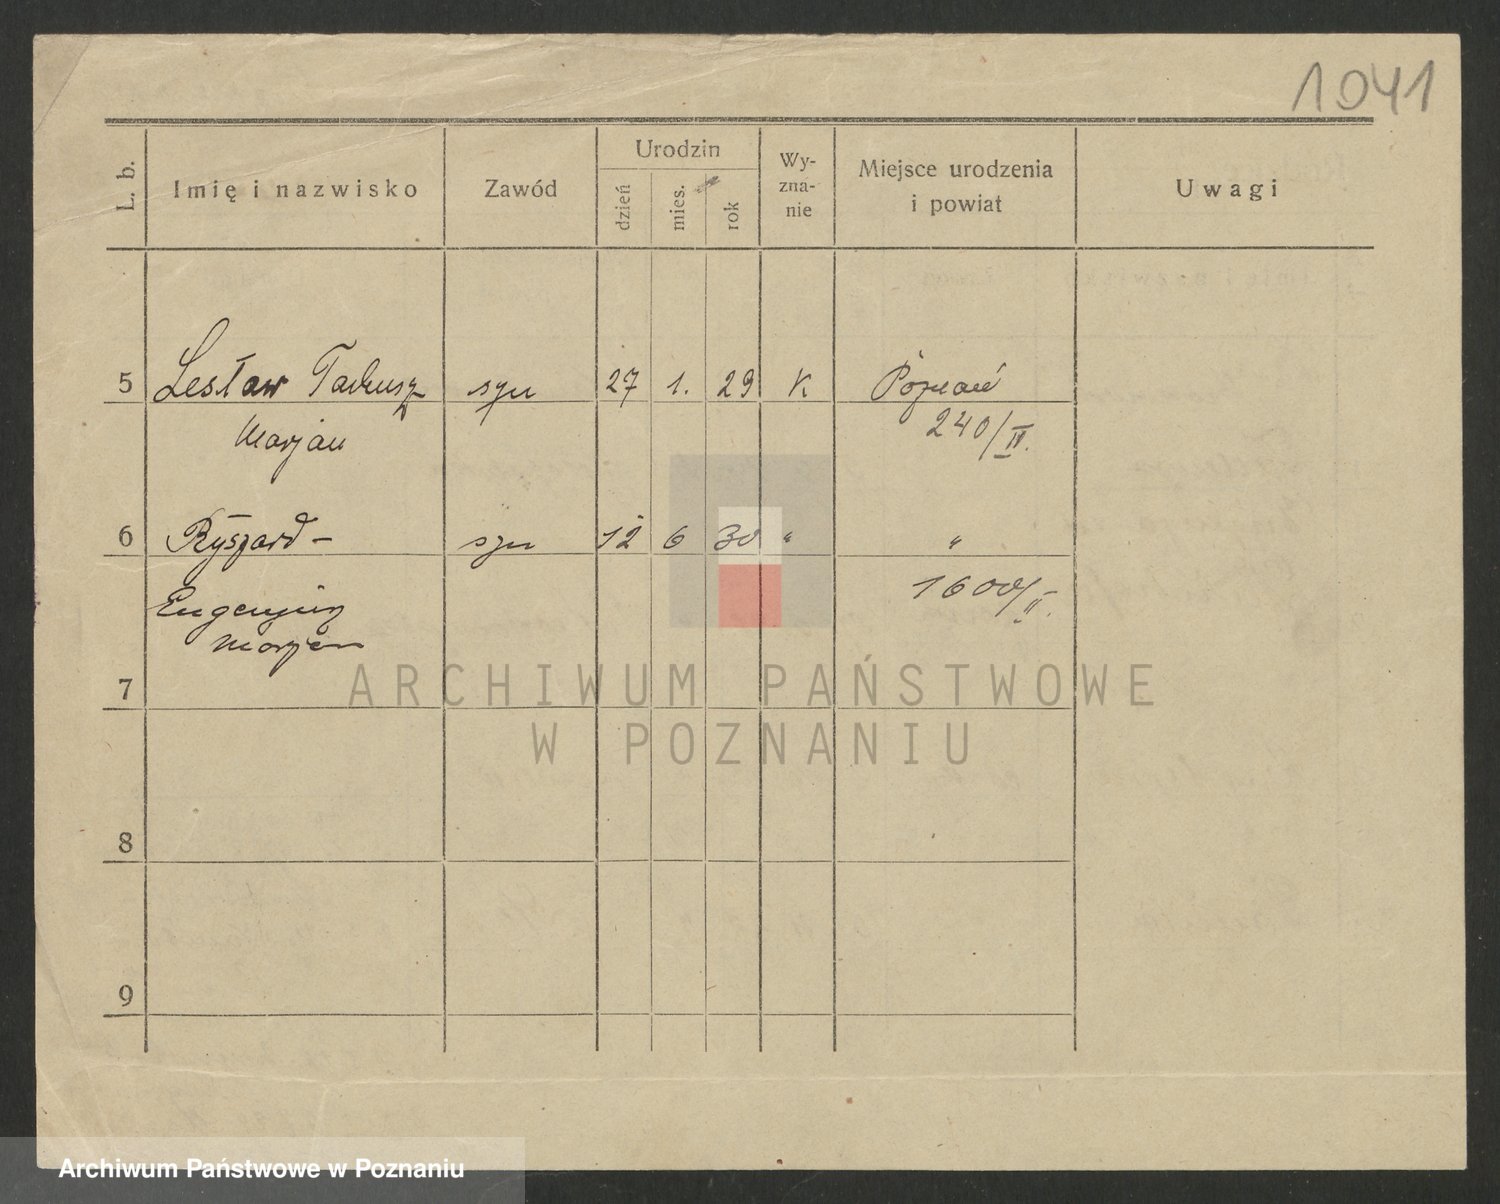 1041
L. b.
Imię i nazwisko
Zawód
Urodzin
dzień
mies.
rok
Wy-
zna-
nie
Miejsce urodzenia
i powiat
Uwagi
5 Lesław Tadeusz syn 27 1. 29 K Poznań
Marjan 240/II.
6 Ryszard - syn 12 6 30 " "
Eugenjusz 1600/II.
Marjan
7
8
9
ARCHIWUM PAŃSTWOWE
W POZNANIU
Archiwum Państwowe w Poznaniu